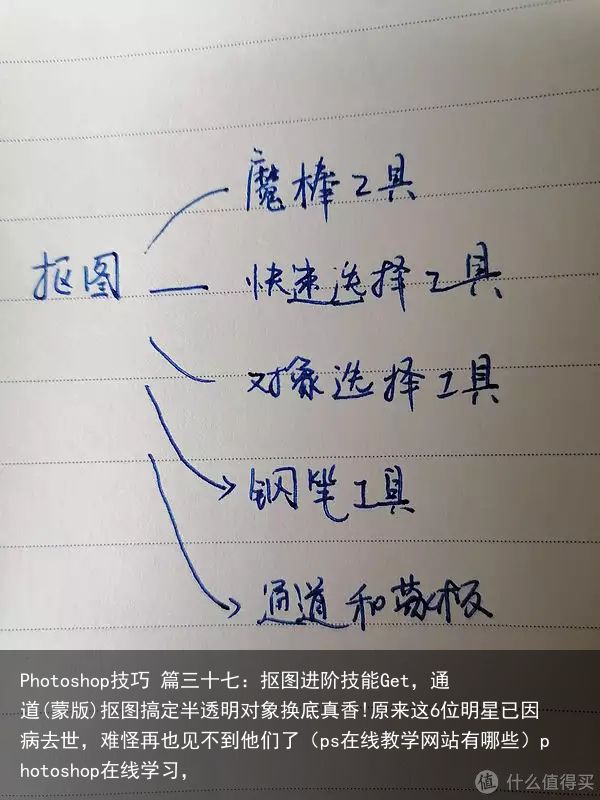 魔棒工具
抠图
快速选择工具
对象选择工具
钢笔工具
通道和蒙板
Photoshop技巧 篇三十七：抠图进阶技能Get，通
道(蒙版)抠图搞定半透明对象换底真香!原来这6位明星已因
病去世，难怪再也见不到他们了（ps在线教学网站有哪些）p
hotoshop在线学习，
值 什么值得买